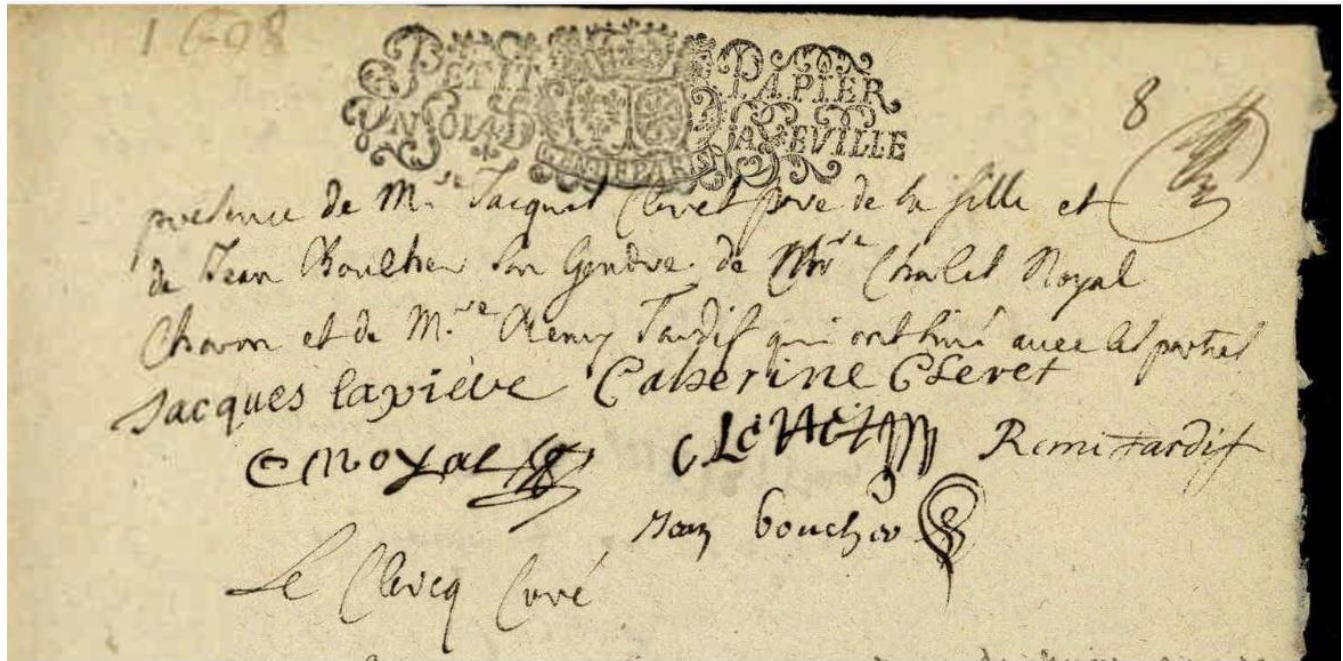 1698
PETIT PAPIER
UN SOL LA FEUILLE
GEN DE PARIS
8
presence de M.re Jacques Cleret pere de la fille et
de Jean Boucher son Gendre de M.re Charles Noyal
Charon et de M.re Remy Tardif qui ont signé avec les parties
Jacques lapiève Catherine Cleret
C Noyal CLERET Remi tardif
Jean boucher
Le Clercq Curé